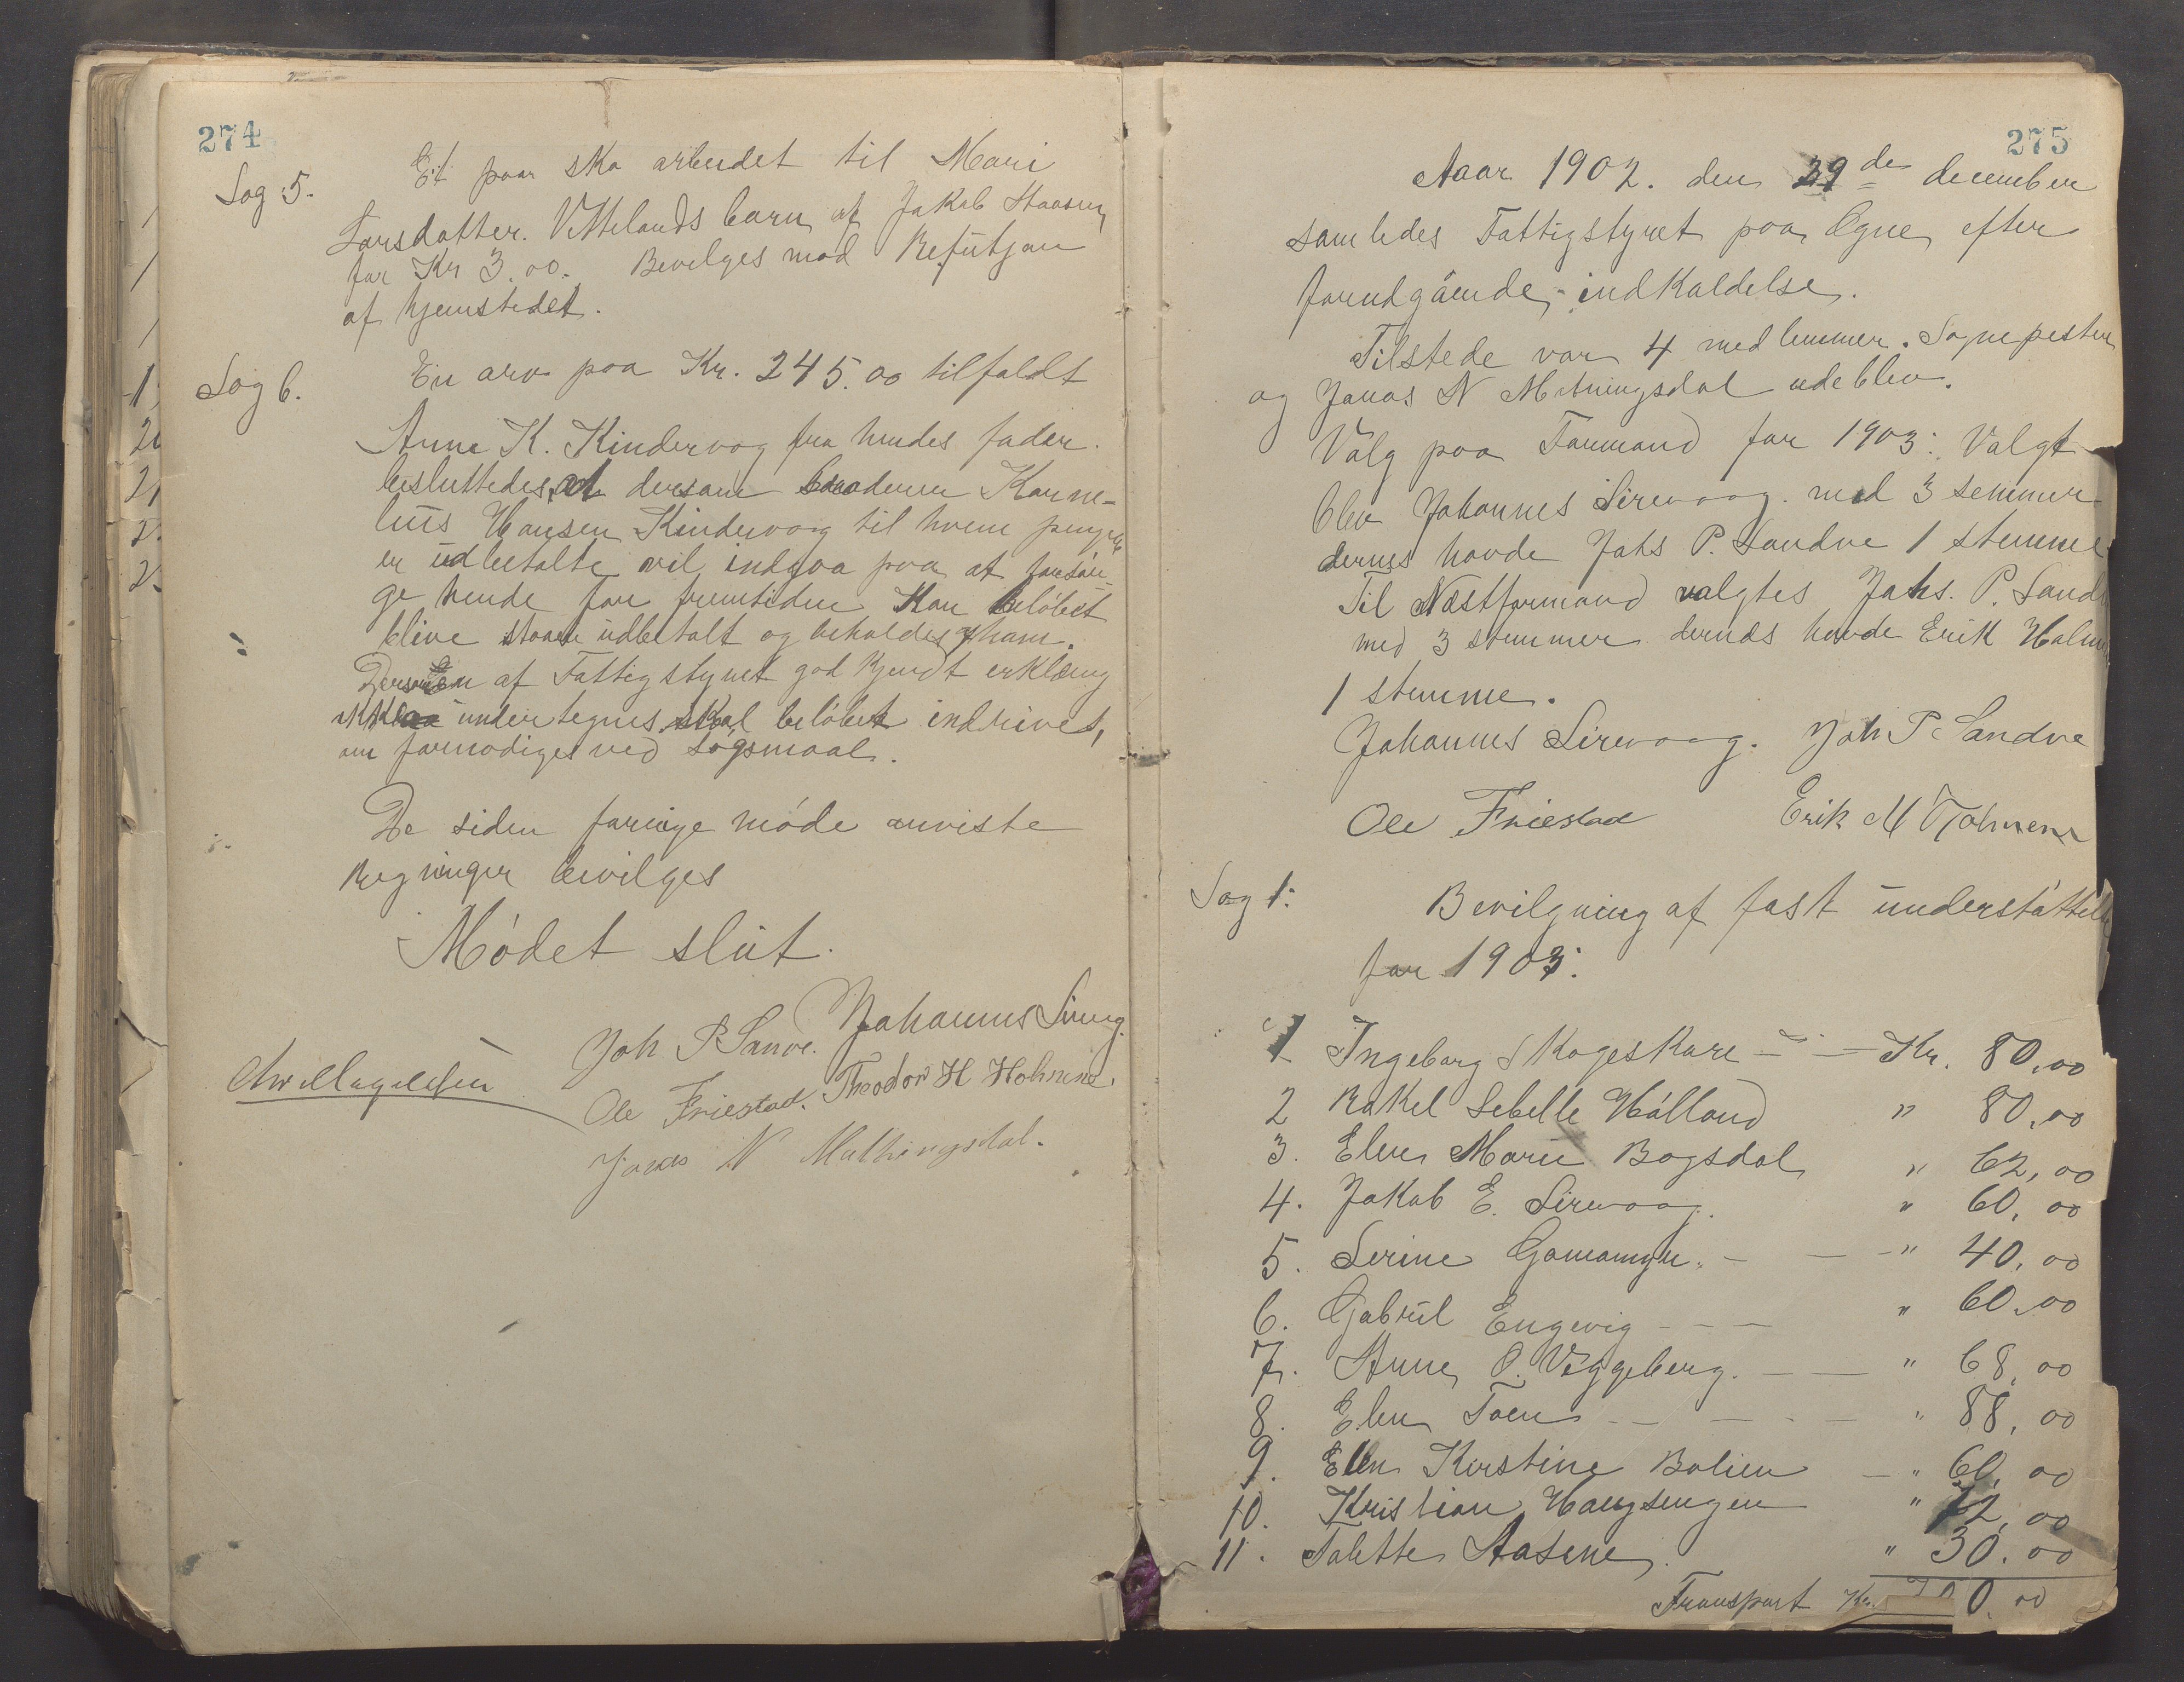 274
Sag 5. Et par sko arbeidet til Mari
Larsdatter. Vettelands barn af Jakob Staasen
for Kr 3.00. Bevilges mod Refutjon
af hjemstedet.
Sag 6. En arv paa Kr. 245.00 tilfaldt
Anne K. Kindervog fra hendes fader.
besluttedes at dersom broderen Karne-
lius Hansen Kindervaag til hvem pengene
er udbetalte vil indgaa paa at forsør-
ge hende for fremtiden kan beløbet
blive staaende udbetalt og beholdes af ham.
Dersom en af Fattigstyret godkjendt erklæring
ikke undertegnes skal beløbet indrives,
om fornødiges ved søgsmaal.
De siden forrige møde anviste
Regninger bevilges
Mødet slut.
Joh P Sanve. Johannes Sirevg.
Ole Friestad. Theodor H Holmene.
Jonas N Mathingsdal.
275
Aaar 1902. den 29de december
samledes Fattigstyret paa Ogne efter
forudgående indkaldelse.
Tilstede var 4 medlemmer. Sognepresten
og Jonas N Matningsdal udeblev.
Valg paa Formand for 1903: Valgt
blev Johannes Sirevaag med 3 stemmer
dernæs havde Johs P. Sandve 1 stemme
Til Næstformand valgtes Johs. P. Sandv
med 3 stemmer dernæs havde Erik Holmen
1 stemme.
Johannes Sirevaag. Joh P Sandve
Ole Friestad Erik M Holmene
Sag 1: Bevilgning af fast understøttelse
for 1903:
1 Ingeborg Skogeskare — — Kr. 80,00
2 Rakel Sebelle Hålland " 80,00
3. Elen Marie Bogsdal " 62,00
4. Jakob E. Sirevaag. " 60,00
5. Serine — — " 40,00
6. Gabriel Engevig - - - " 60,00
7. Anne O. Viggeberg. — — " 68,00
8. Elen Toen — — — " 88,00
9. Ellen Kirstine Bolien — " 60,00
10. Kristian Haugsengen " 72,00
11. Talette Aasene. " 30.00
Transport Kr. 700.00